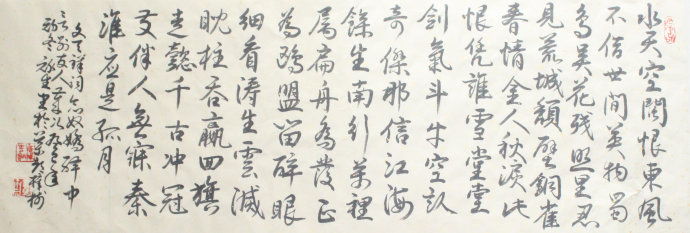 水天空闊恨東風
不借世間英物蜀
鳥吳花殘照里忍
見荒城頹壁銅雀
春情金人秋淚此
恨凭誰雪堂堂
劍氣斗牛空認
奇傑那信江海
餘生南行萬里
属扁舟為發正
為鷗盟留醉眼
細看濤生雲滅
睨柱吞嬴回旗
走懿千古冲冠
发伴人無寐秦
淮應是孤月
文天祥詞念奴嬌驛中
言別友人
書於